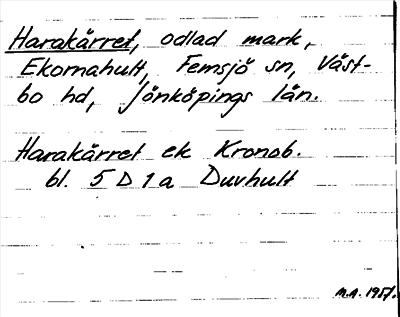 Harakärret, odlad mark,
Ekornahult, Femsjö sn, Väst-
bo hd, Jönköpings län.
Harakärret ek Kronob.
bl. 5 D 1 a Duvhult
M.A. 1951.